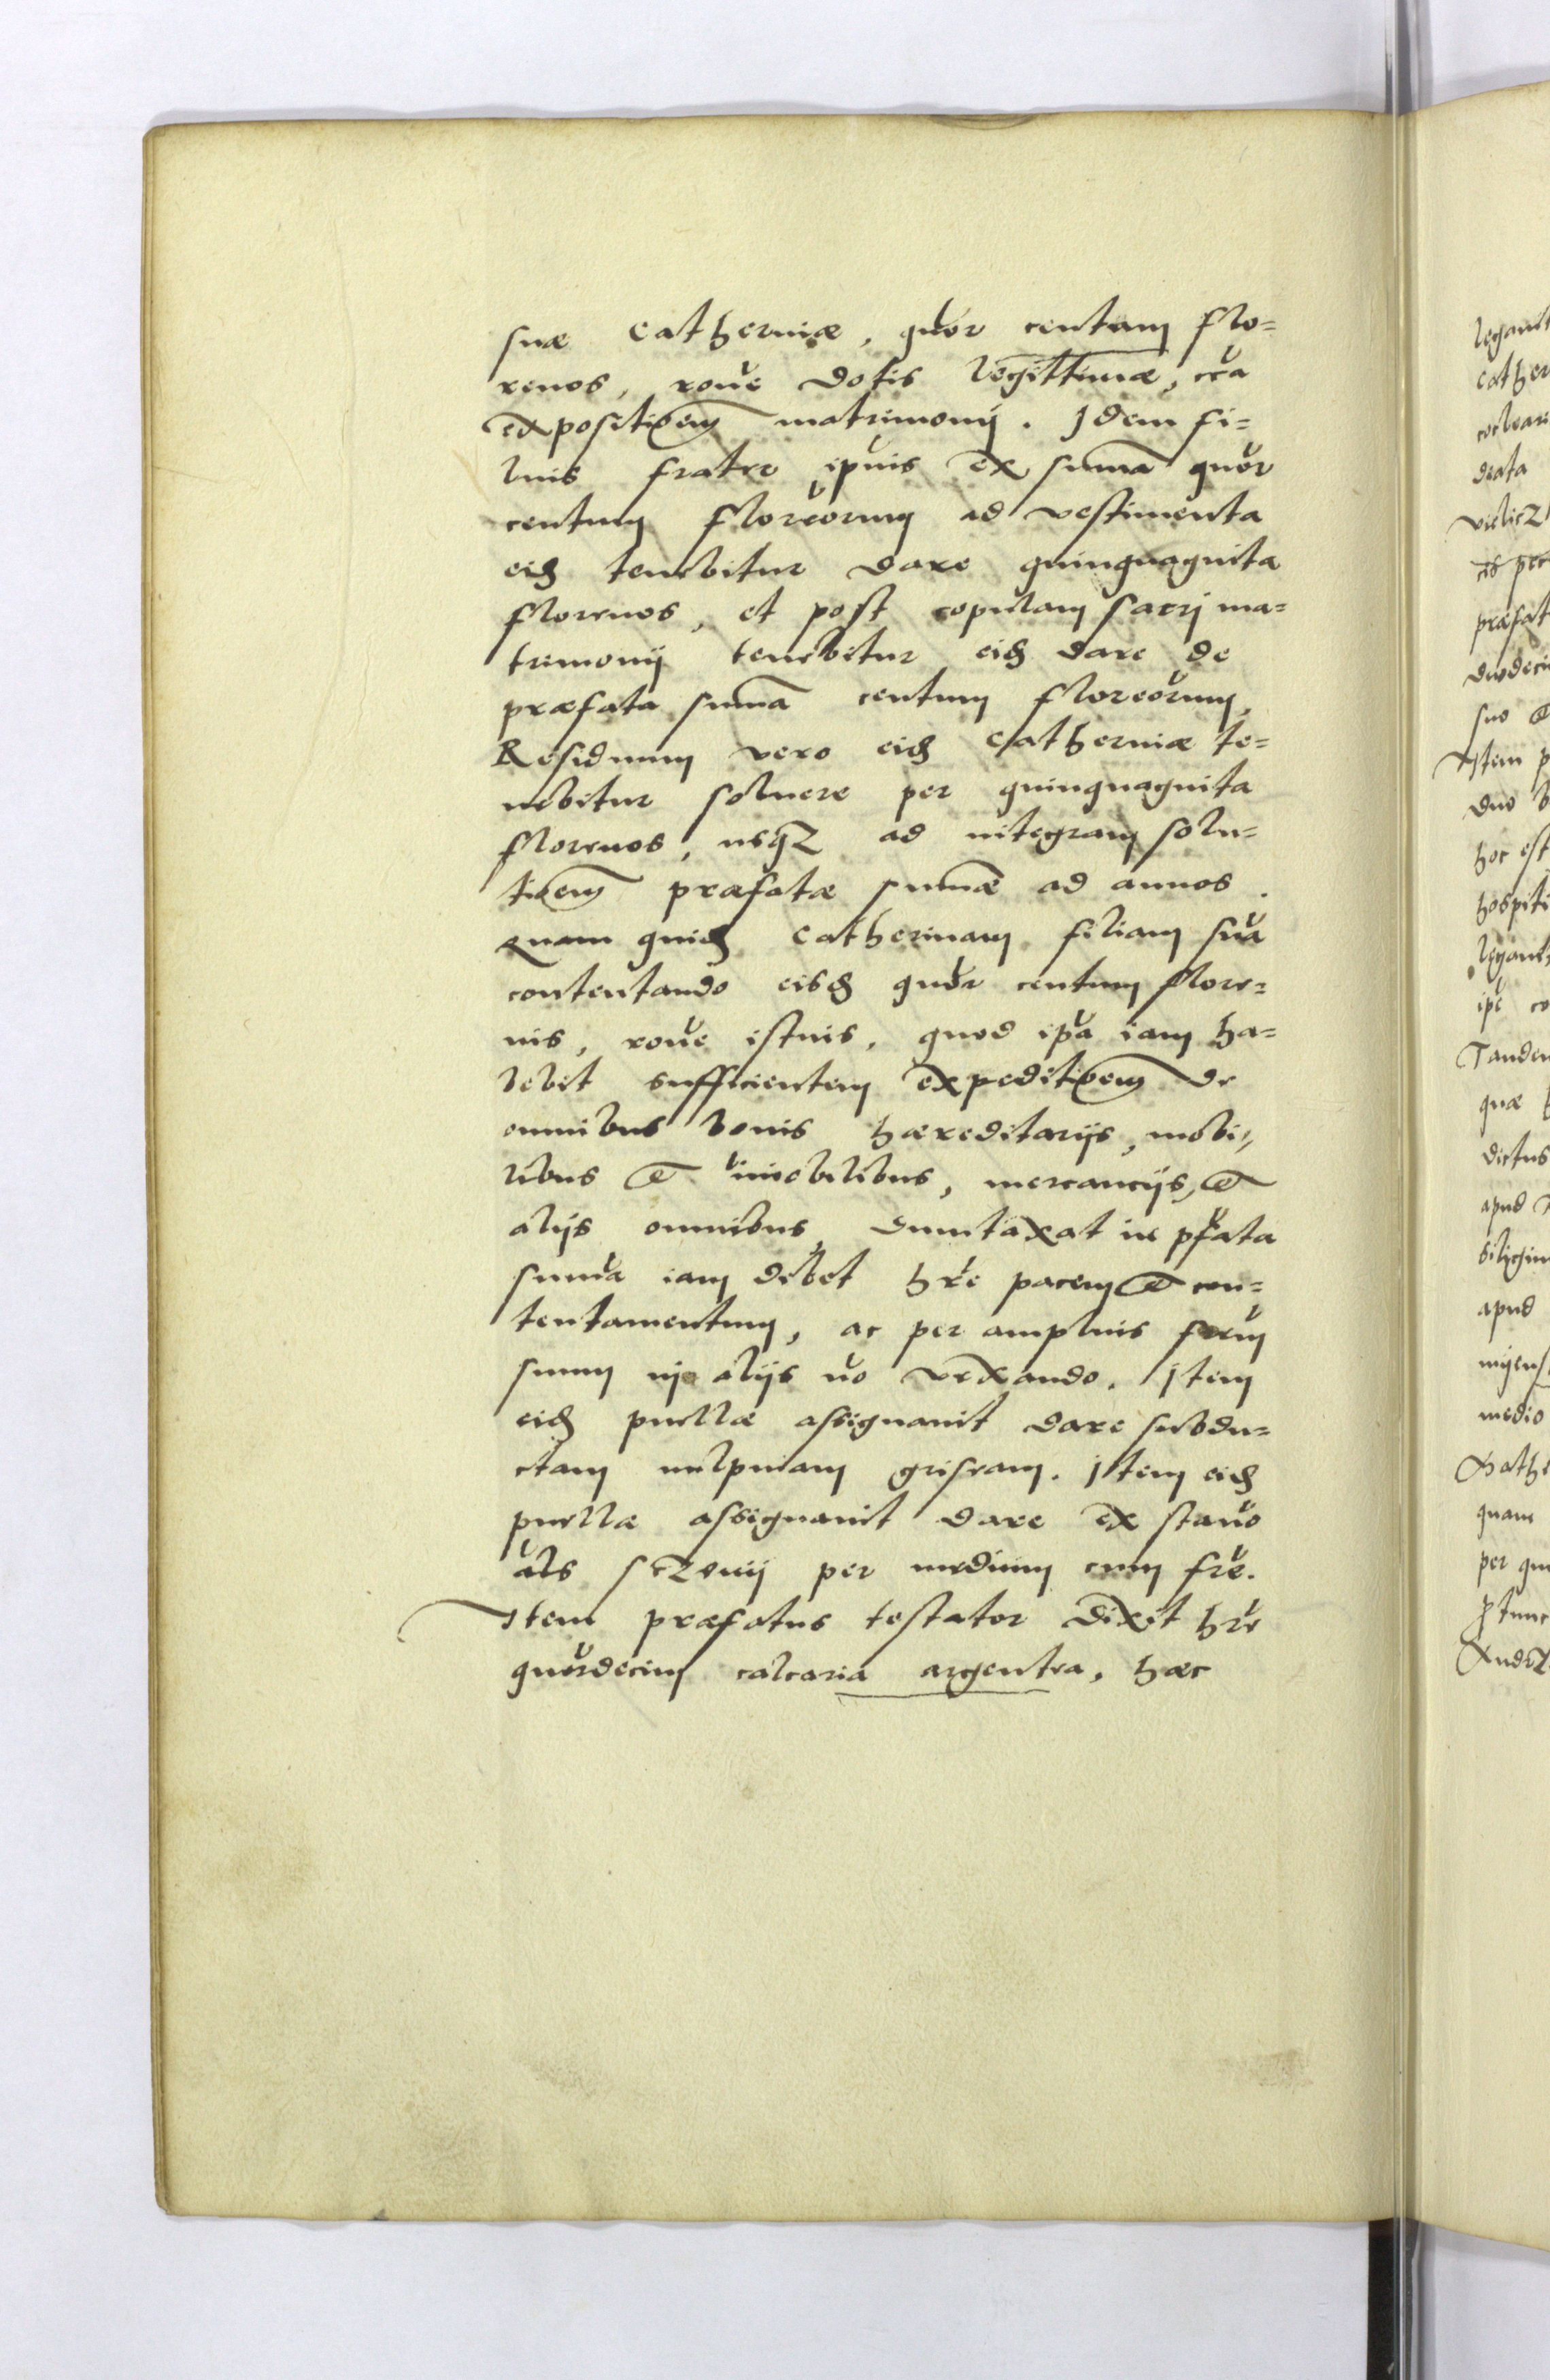 suæ Catherinæ, quor centum flo=
renos, rone dotis legittimæ, cca
expositioem matrimonij. Idem fi=
lius frater ipius ex suma quor
centum floreorum ad vestimenta
eid tenebitur dare quinquaginta
florenos, et post copulam sacrj ma=
trimonij tenebitur eid dare de
præfata suma centum floreorum,
Residuum vero eid Catherinæ te=
nebitur soluere per quinquaginta
florenos, usqz ad integram solu=
tioem præfatæ sumæ ad annos.
Quam quid Catherinam filiam sua
contentando eisd quor centum flore=
nis, rone istius, quod ipa iam ha=
bebit sufficientem expeditioem de
omnibus bonis hæreditarijs, mobi=
libus et imobilibus, mercancijs, et
alijs omnibus, dumtaxat in pfata
suma iam debet hre pacem et con=
tentamentum, ac per amplius frem
suum in alijs no vexando. Item
eid puellæ assignauit dare subdu=
ctam uulpinam griseam. Item eid
puellæ assignauit dare ex stano
als per medium cum fre.
Item præfatus testator dixit hre
quordecim calcaria argentea, hæc
legauit
Cather
coclear
deata
videlicz
præfat
duodeci
suo et
Item p
duo
hoc est
hospiti
legauit
ipe co
Tandem
quæ
dictus
apud
siligin
apud
medio
quam
per qu
ptunc